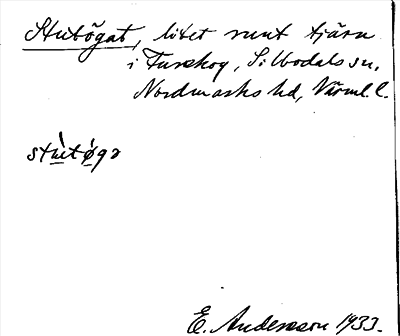 Stutögat, litet runt tjärn
i Furskog, Sillbodals sn,
Nordmarks hd, Värml. l.
stùtø̀gə
E. Andersson 1933.